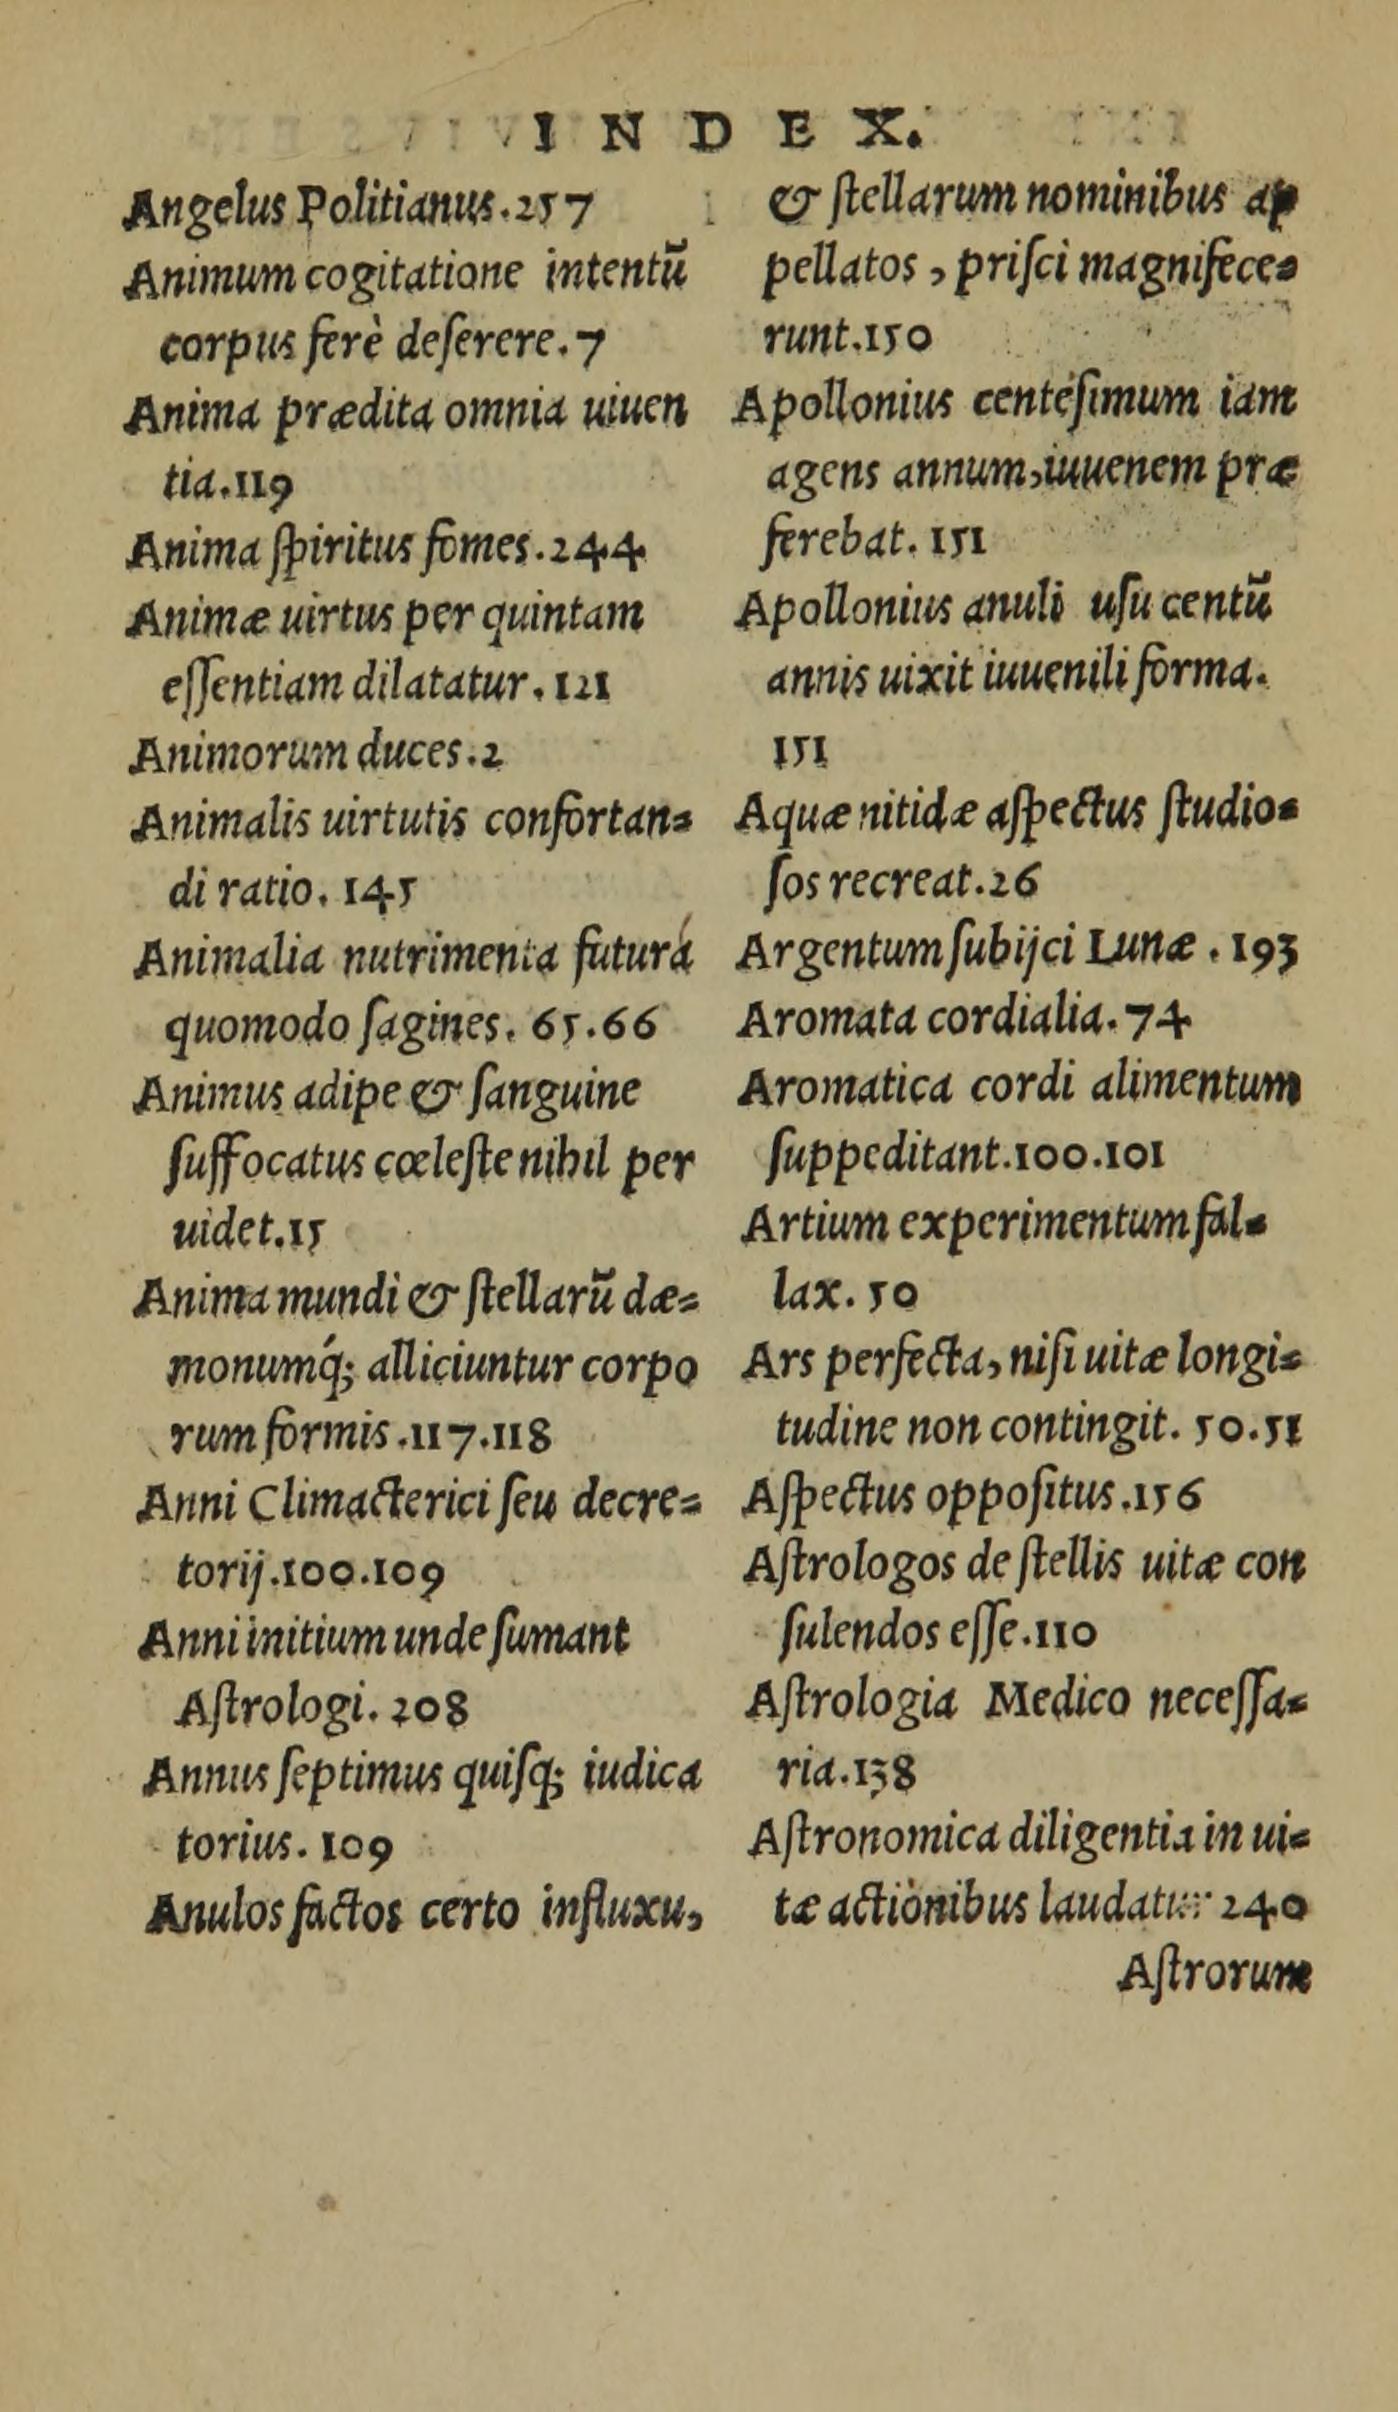 INDEX.
Angelus Politianus.257
Animum cogitatione intentũ
corpus ferè deſerere.7
Anima prædita omnia uiuen
tia.119
Anima ſpiritus fomes.244
Animæ uirtus per quintam
eſſentiam dilatatur.121
Animorum duces.2
Animalis uirtutis confortan⸗
di ratio. 145
Animalia nutrimenta futurá
quomodo ſagines. 65.66
Animus adipe & ſanguine
ſuffocatus cœleſte nihil per
uidet.15
Anima mundi & ſtellarũ dæ⸗
monumq́; alliciuntur corpo
rum formis.117.118
Anni Climacterici ſeu decre⸗
torij.100.109
Anni initium unde ſumant
Aſtrologi. 208
Annus ſeptimus quiſq; iudica
torius. 109
Anulos factos certo influxu,
& ſtellarum nominibus ap
pellatos, priſci magnifece⸗
runt.150
Apollonius centeſimum iam
agens annum, iuuenem præ
ferebat. 151
Apollonius anuli uſu centũ
annis uixit iuuenili forma.
151
Aquæ nitidæ aſpectus ſtudio⸗
ſos recreat.26
Argentum ſubijci Lunæ. 193
Aromata cordialia.74
Aromatica cordi alimentum
ſuppeditant.100.101
Artium experimentum fal⸗
lax. 50
Ars perfecta, niſi uitæ longi⸗
tudine non contingit. 50.51
Aſpectus oppoſitus.156
Aſtrologos de ſtellis uitæ con
ſulendos eſſe.110
Aſtrologia Medico neceſſa⸗
ria.138
Aſtronomica diligentia in ui⸗
tæ actionibus laudatur 240
Aſtrorum